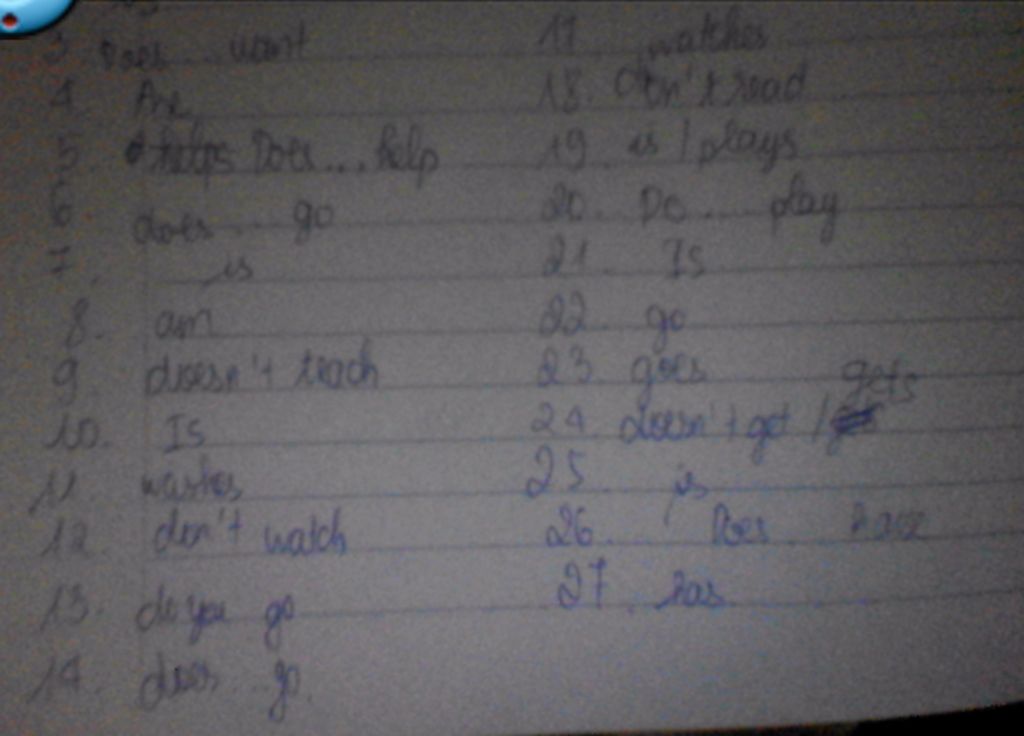 3 Does ... want
4 Are
5. Does ... help
6 does ... go
7. is
8. am
9. doesn't teach
10. Is
11. washes
12. don't watch
13. do you go
14. does ... go.
17 watches
18. don't read
19 is / plays
20. Do ... play
21. Is
22. go
23 goes
24 doesn't get / gets
25 is
26. Does have
27. has